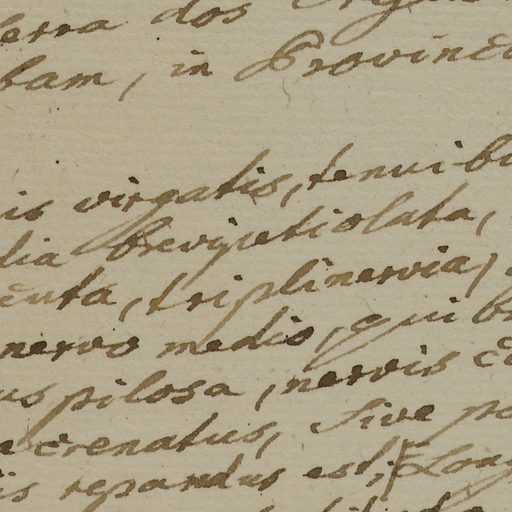 Serra dos Orga
bam, in Provinci
is virgatis, tenuibu
lia brevipetiolata,
cuta, triplinervia,
nervo medio, qui b
us pilosa, nervis
crenatus, sive pa
is repandus est; Long